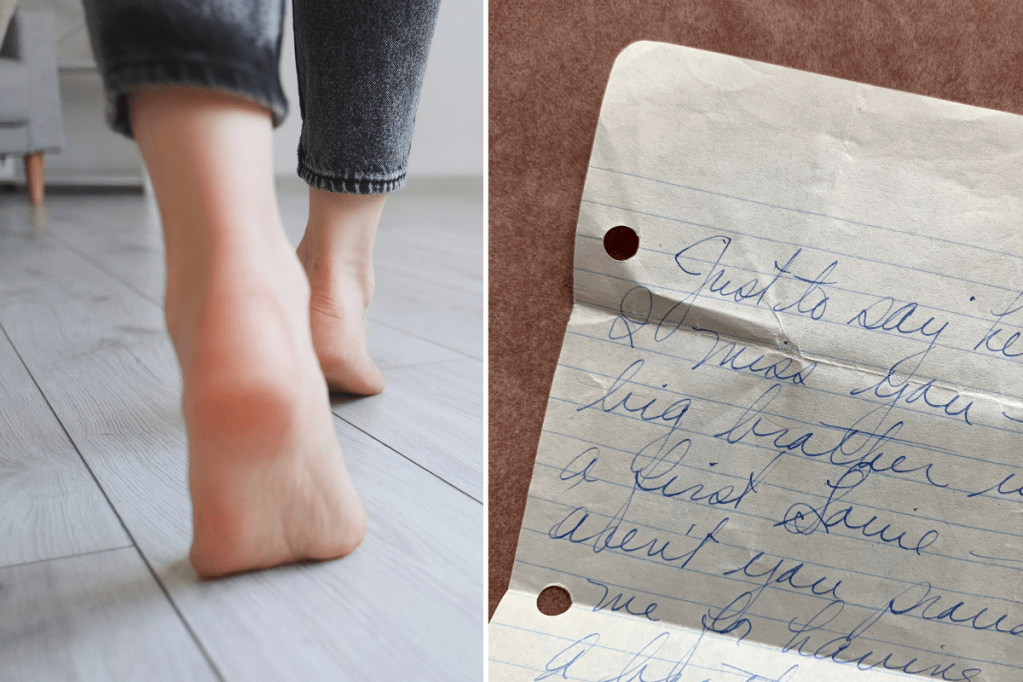 Just to say he
I miss you
big brother is
a first
aren't you proud
me for having
a